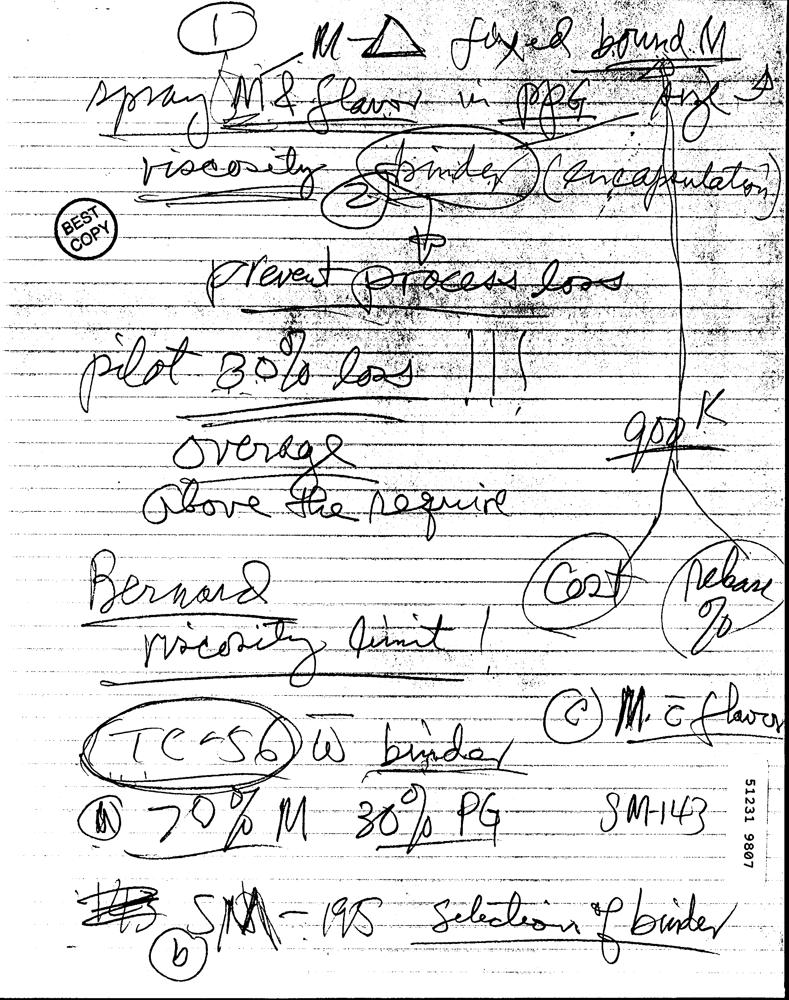 1 M-△ fixed bound M
spray M & flavor in PG
viscosity binder (encapsulation)
2
BEST COPY
prevent process loss
pilot 30% loss !!!
900 K
overage
above the require
Cost release %
Bernard
viscosity limit !
C M. c̄ flavor
TC-56 w̄ binder
a 70% M 30% PG SM-143
51231 9807
b SM-195 selection of binder